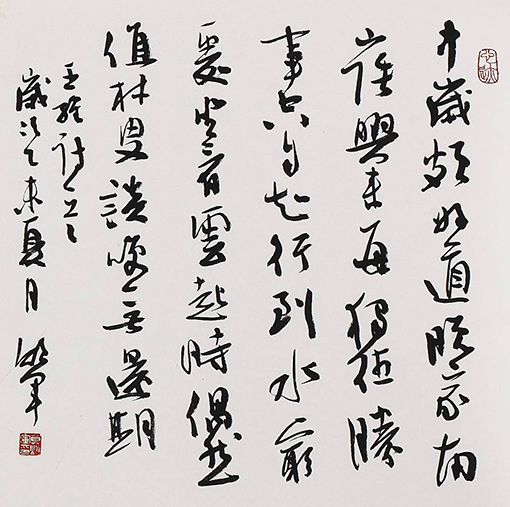 中歲頗好道晚家南
山陲興来每獨往勝
事空自知行到水窮
處坐看雲起時偶然
值林叟談笑無還期
王維詩
歲次乙未夏月